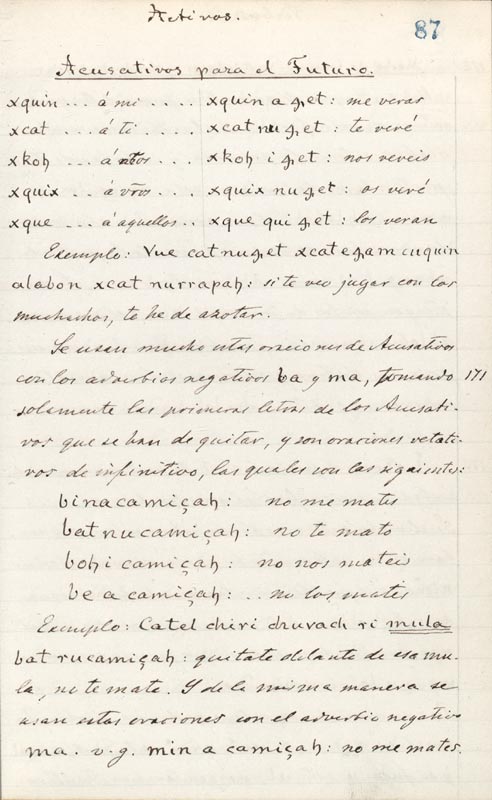 Activos.
87
Acusativos para el Futuro.
xquin ... á mi .... xquin a ꜫet: me veras
xcat ... á ti .... xcat nu ꜫet: te veré
xkoh ... á nros ... xkoh i ꜫet: nos vereis
xquix ... á vros ... xquix nu ꜫet: os veré
xque ... á aquellos.. xque qui ꜫet: los veran
Exemplo: Vue cat nu ꜫet xcateꜫam cuquin
alabon xcat nurrapah: si te veo jugar con los
muchachos, te he de azotar.
Se usan mucho estas oraciones de Acusativos
con los adverbios negativos ba y ma, tomando 171
solamente las primeras letras de los Acusati-
vos que se han de quitar, y son oraciones vetati-
vas de infinitivo, las quales son las siguientes:
binacamiçah: no me mates
bat nu camiçah: no te mato
boh i camiçah: no nos mateis
be a camiçah: .. no los mates
Exemplo: Catel chiri chuvach ri mula
bat rucamiçah: quitate delante de esa mu-
la, no te mate. Y de la misma manera se
usan estas oraciones con el adverbio negativo
ma. v.g. min a camiçah: no me mates.